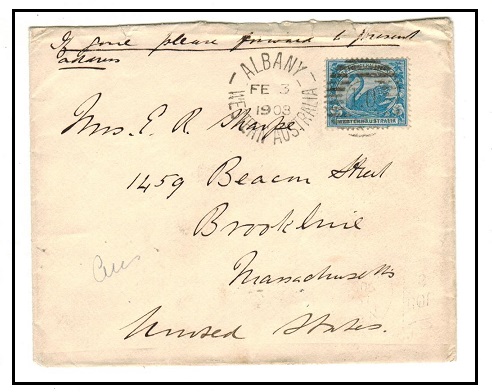 If gone please forward to present
address
ALBANY
FE 3
1903
WESTERN AUSTRALIA
WESTERN AUSTRALIA
Mrs. E. R. Sharpe
1459 Beacon Street
Brookline
Massachusetts
United States.